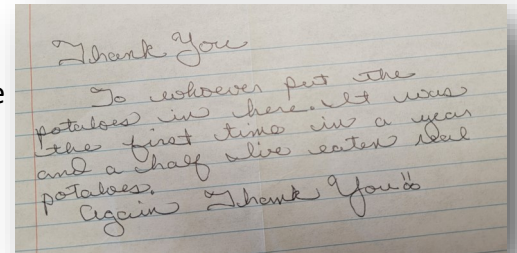 Thank You
To whoever put the
potatoes in here. It was
the first time in a year
and a half I've eaten real
potatoes.
Again Thank You!!
e